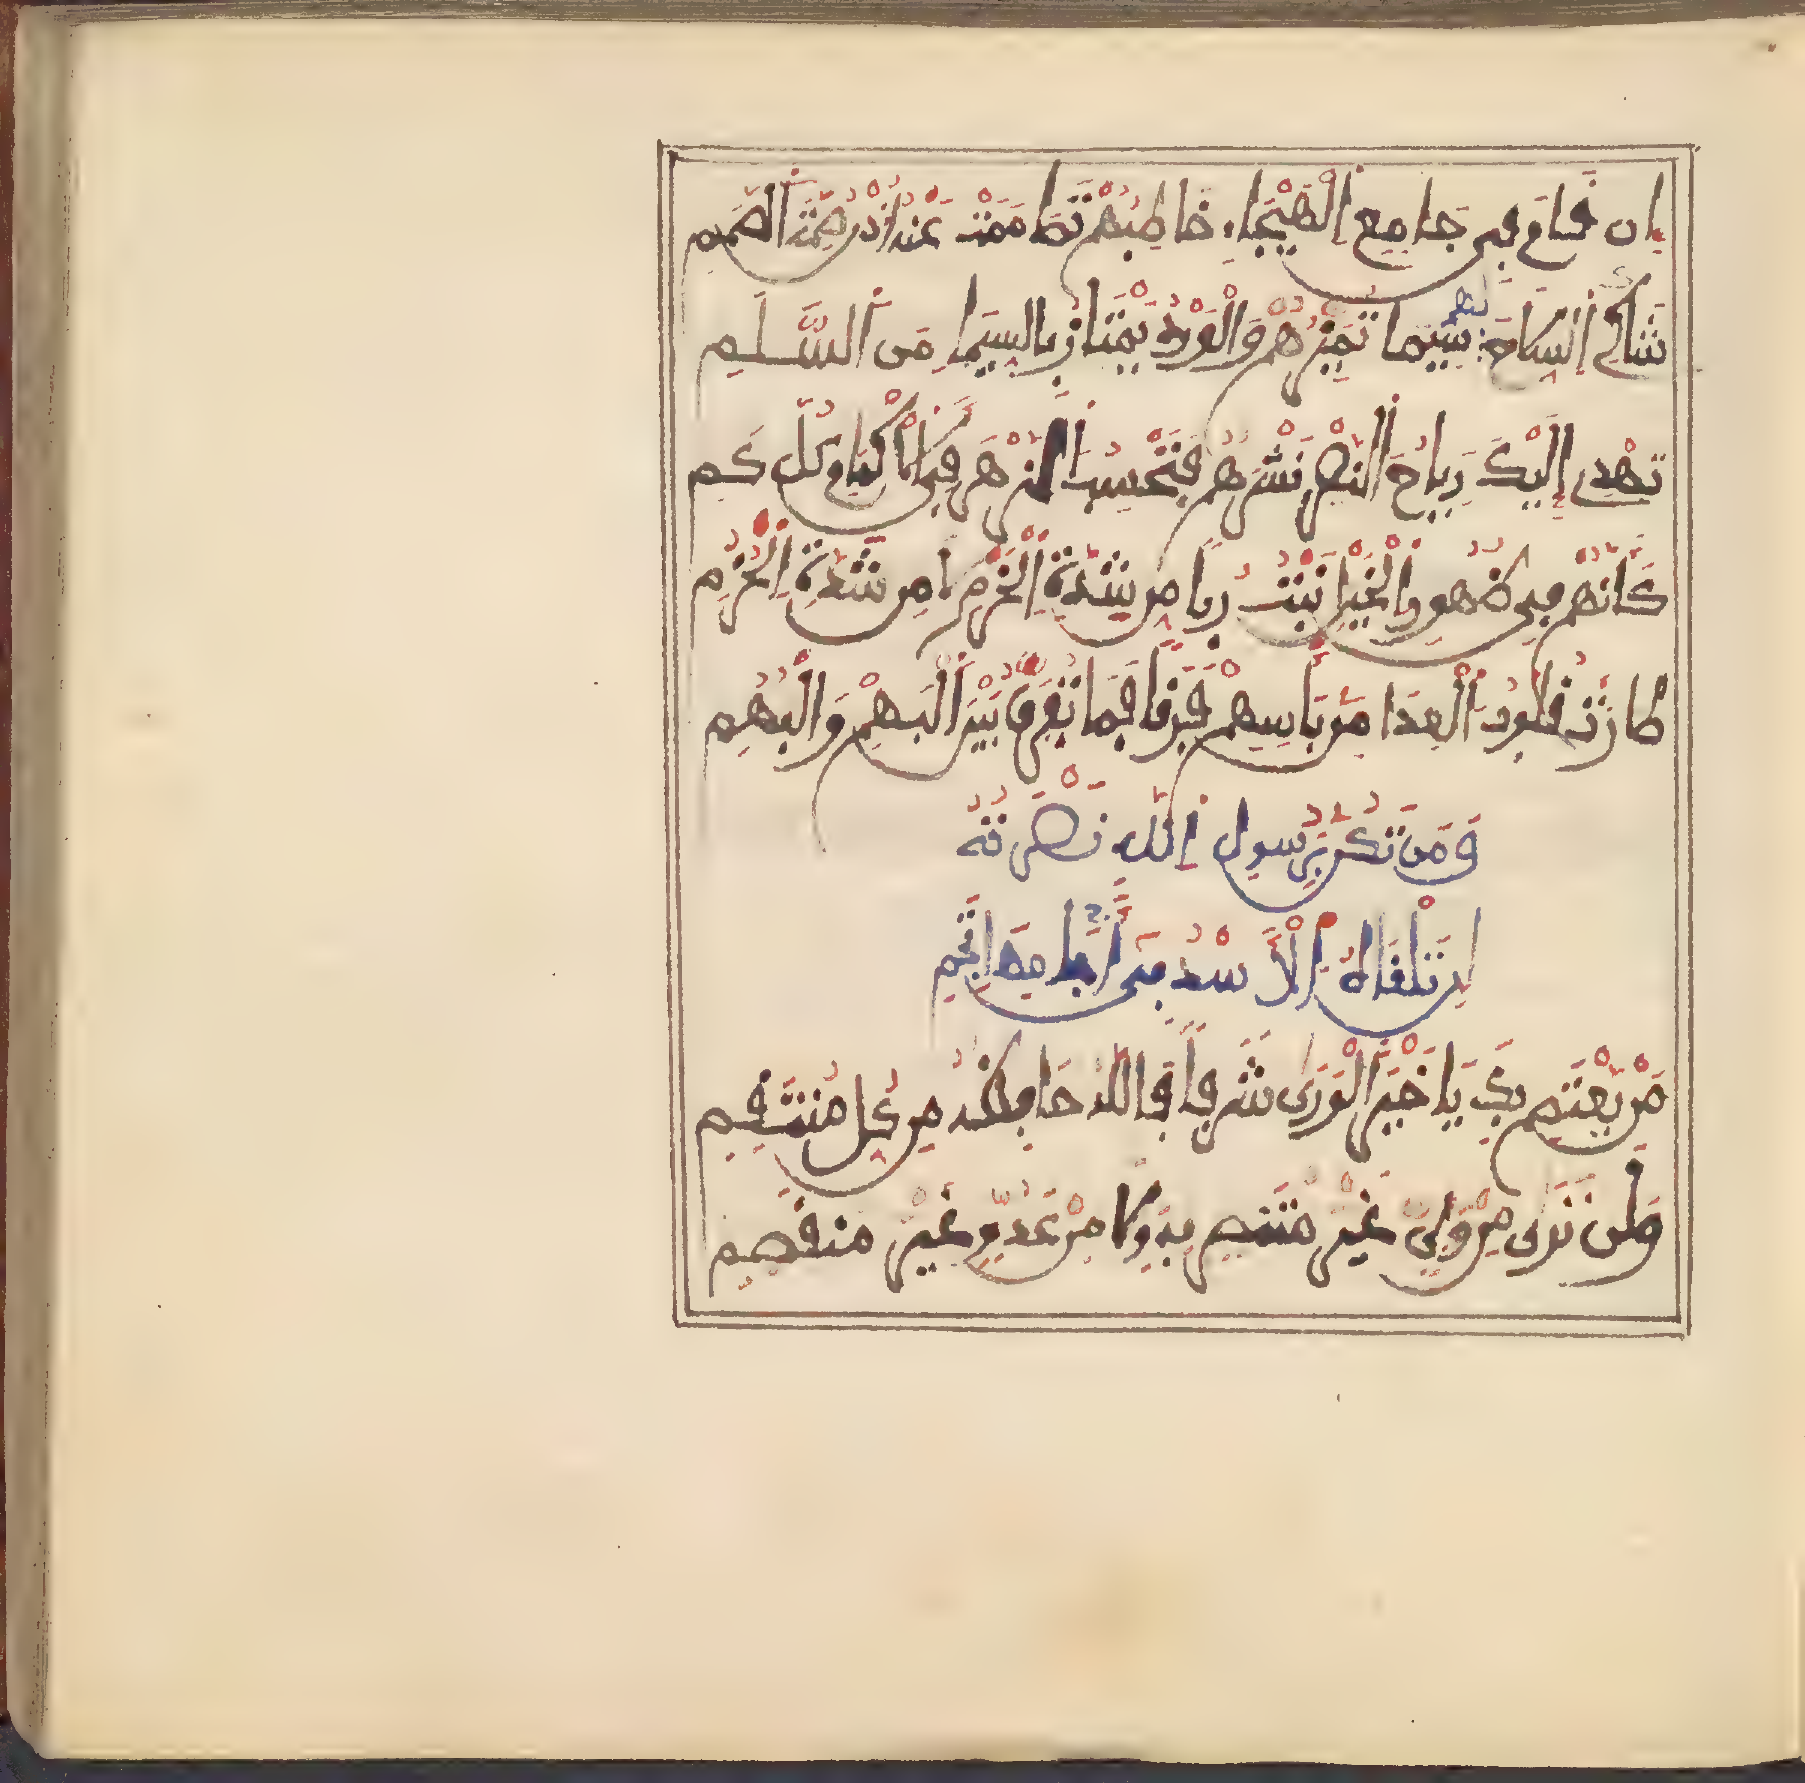 إِن قَامَ فِي جَامِعِ الْهَيْجَاءِ خَاطِبُهُمْ تَصَامَمَتْ عَنْهُ أُذْنُ صِمَّةِ الصَّمَمِ
شَاكِي السِّلَاحِ لَهُمْ سِيمَا تُمَيِّزُهُمْ وَالْوَرْدُ يَمْتَازُ بِالسِّيمَا مِنَ السَّلَمِ
تُهْدِي إِلَيْكَ رِيَاحُ النَّصْرِ نَشْرَهُمُ فَتَحْسِبُ الزَّهْرَ فِي الْأَكْمَامِ كُلَّ كَمِ
كَأَنَّهُمْ فِي ظُهُورِ الْخَيْلِ نَبْتُ رُبًا مِن شِدَّةِ الْحَزْمِ لَا مِن شَدَّةِ الْحُزُمِ
طَارَتْ قُلُوبُ الْعِدَا مِن بَأْسِهِمْ فَرَقًا فَمَا تُفَرِّقُ بَيْنَ الْبَهْمِ وَالْبُهَمِ
وَمَن تَكُن بِرَسُولِ اللَّهِ نَصْرَتُهُ
إِن تَلْقَهُ الْأُسْدُ فِي آجَامِهَا تَجِمِ
مَن يَعْتَصِمْ بِكَ يَا خَيْرَ الْوَرَى شَرَفًا فَاللَّهُ حَافِظُهُ مِن كُلِّ مُنْتَقِمِ
وَلَن تَرَى مِن وَلِيٍّ غَيْرِ مُنْتَصِرٍ بِهِ وَلَا مِنْ عَدُوٍّ غَيْرِ مُنْقَصِمِ